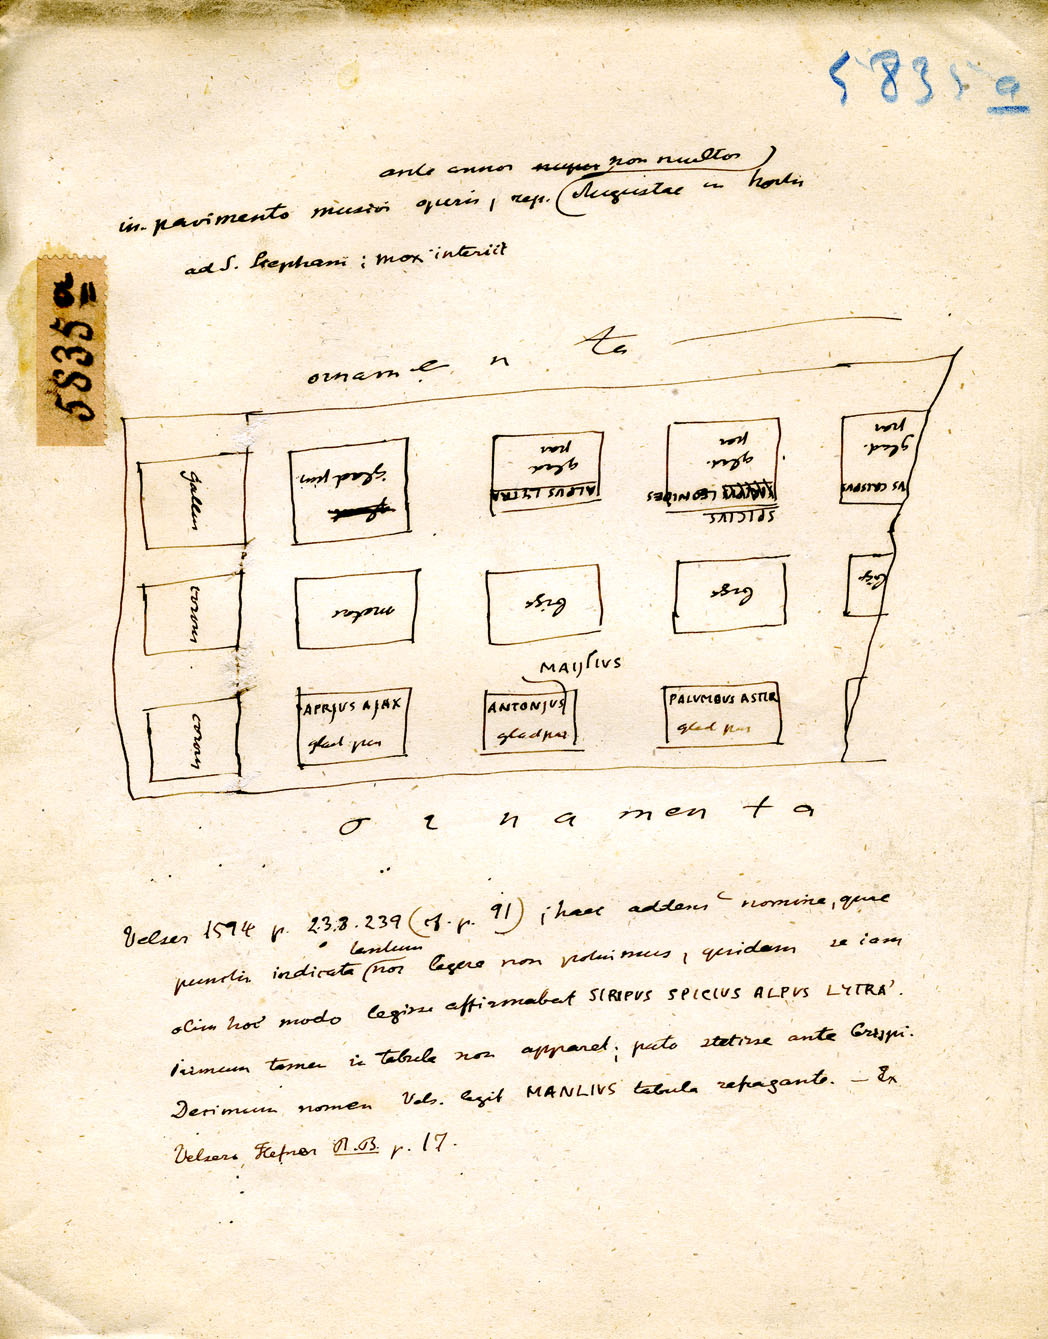 5835 a
ante annos nuper non multos
in pavimento musivi operis, rep. (Augustae in hortis
ad S. Stephani; mox interiit
5835 a
ornamenta
gallus
glad par
glad
glad. par
ALPUS LYTRA
glad. par
LEONIDES
SPICIUS
glad. par
US CRISPUS
coron
metae
bige
bige
bige
MANLIUS
coron
APRIUS AJAX
glad par
ANTONIUS
glad par
PALUMBUS ASTER
glad par
ornamenta
Velser 1594 p. 238. 239 (cf. p. 91) ; haec addens nomina, quae
punctis indicata tantum nos legere non potuimus, quidam se iam
olim hoc modo legisse affirmabat SIRIPUS SPICIUS ALPUS LYTRA.
Primum tamen in tabula non apparet; puto stetisse ante Crispi.
Decimum nomen Vels. legit MANLIUS tabula refragante. — Ex
Velsero Hefner R.B. p. 17.